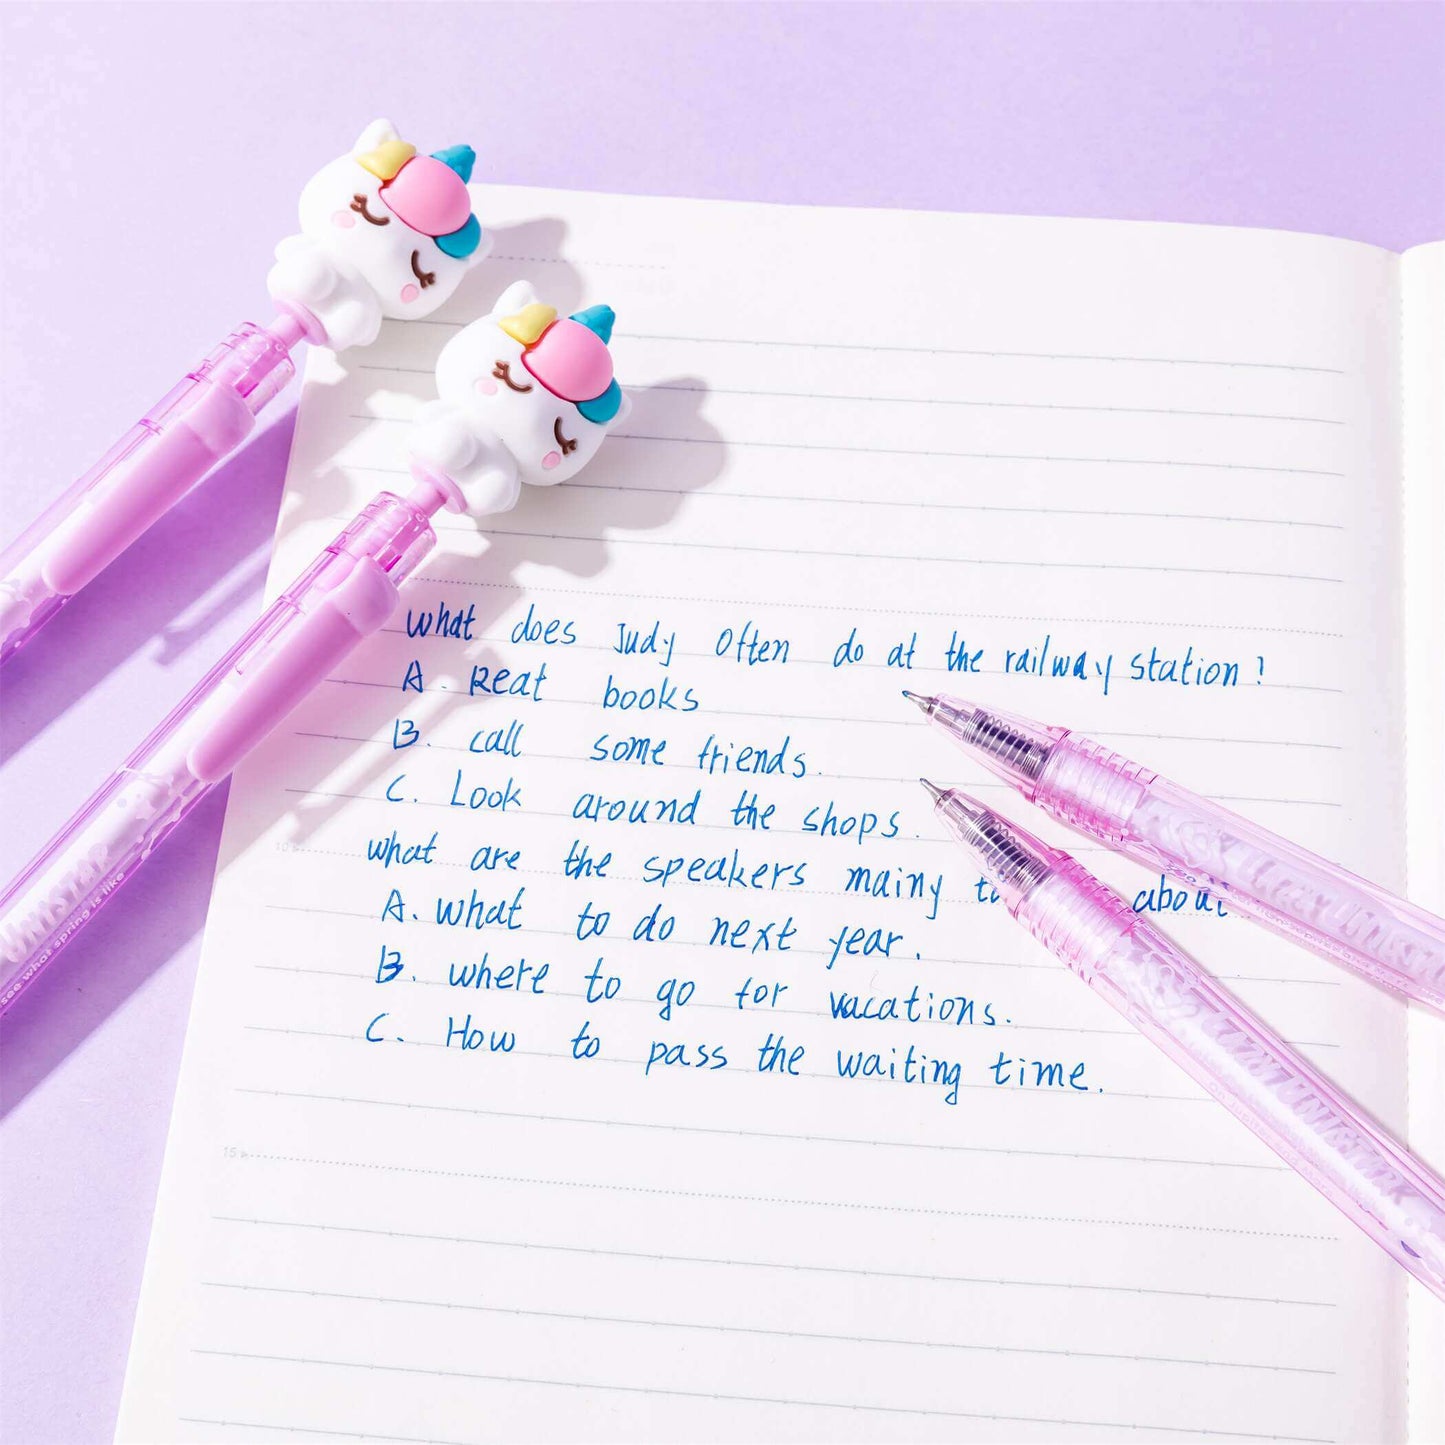 What does Judy Often do at the railway station?
A. Reat books
B. call some friends.
C. Look around the shops.
what are the speakers mainy about
A. what to do next year.
B. where to go for vacations.
C. How to pass the waiting time.
10
15
see what spring is like